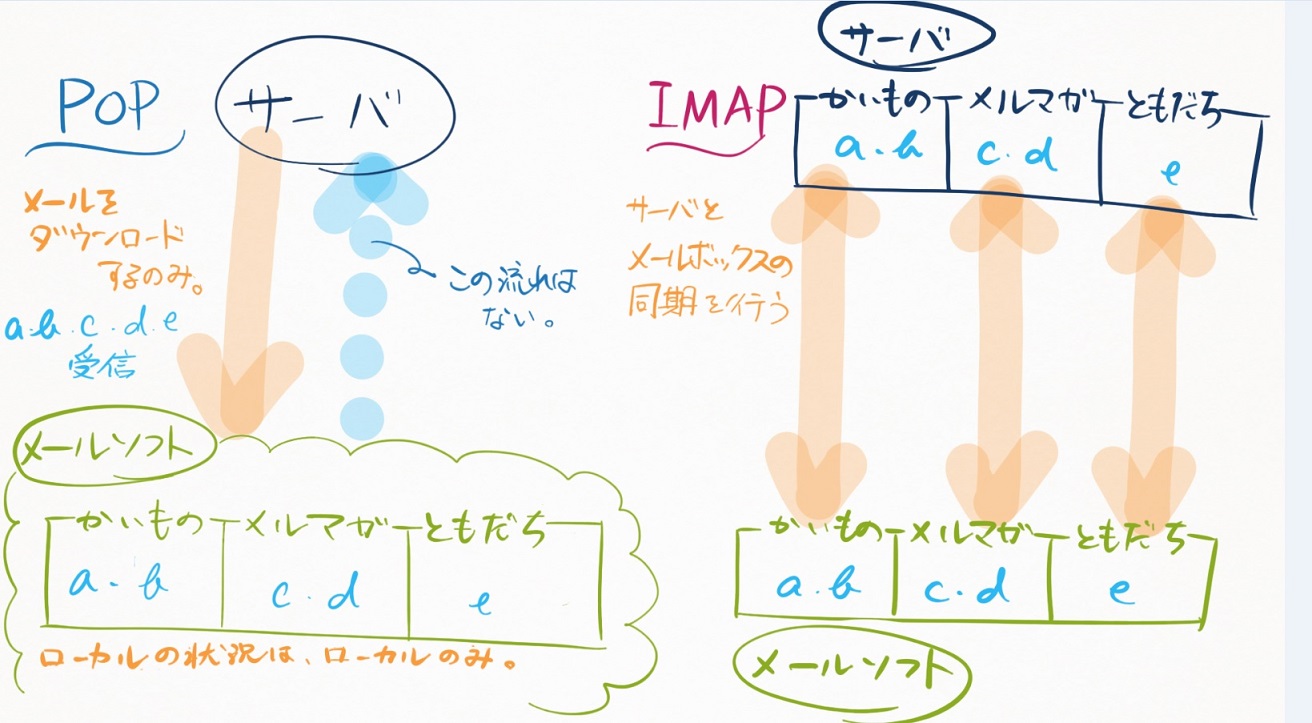 POP
サーバ
メールを
ダウンロード
するのみ。
a.b.c.d.e
受信
この流れは
ない。
メールソフト
かいもの メルマガ ともだち
a.b c.d e
ローカルの状況は、ローカルのみ。
サーバ
IMAP
かいもの メルマガ ともだち
a.b c.d e
サーバと
メールボックスの
同期を行う
かいもの メルマガ ともだち
a.b c.d e
メールソフト